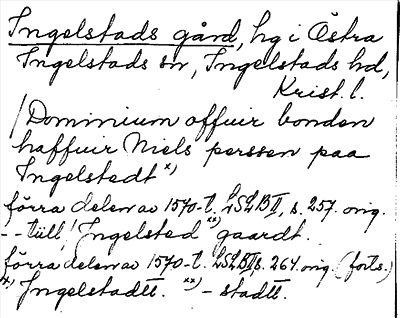 Ingelstads gård, hg i Östra
Ingelstads sn, Ingelstads hd,
Krist. l.
/Dominium offuir bonden
haffuir Niels perssen paa
Ingelstedt x)
förra delen av 1570-t. LSLB II, s. 257. orig.
-- till / Jngelsted xx) gaardt.
förra delen av 1570-t. LSLB II, s. 264. orig. (forts.)
x) Jngelstadtt. xx) -stadtt.